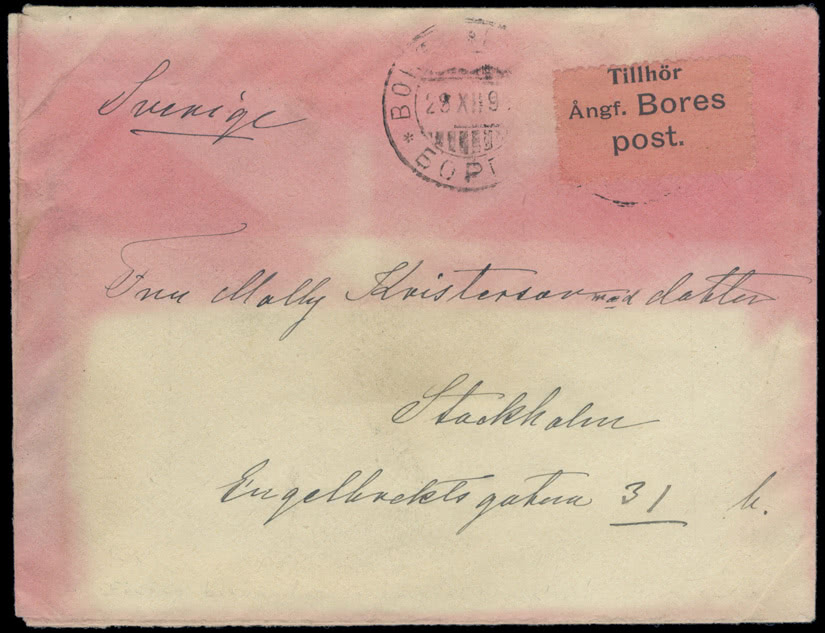 Sverige
BO
28 XII 9
* БОРГ
Tillhör
Ångf. Bores
post.
Fru Molly Kristerson med dotter
Stockholm
Engelbrektsgatan 31 b.